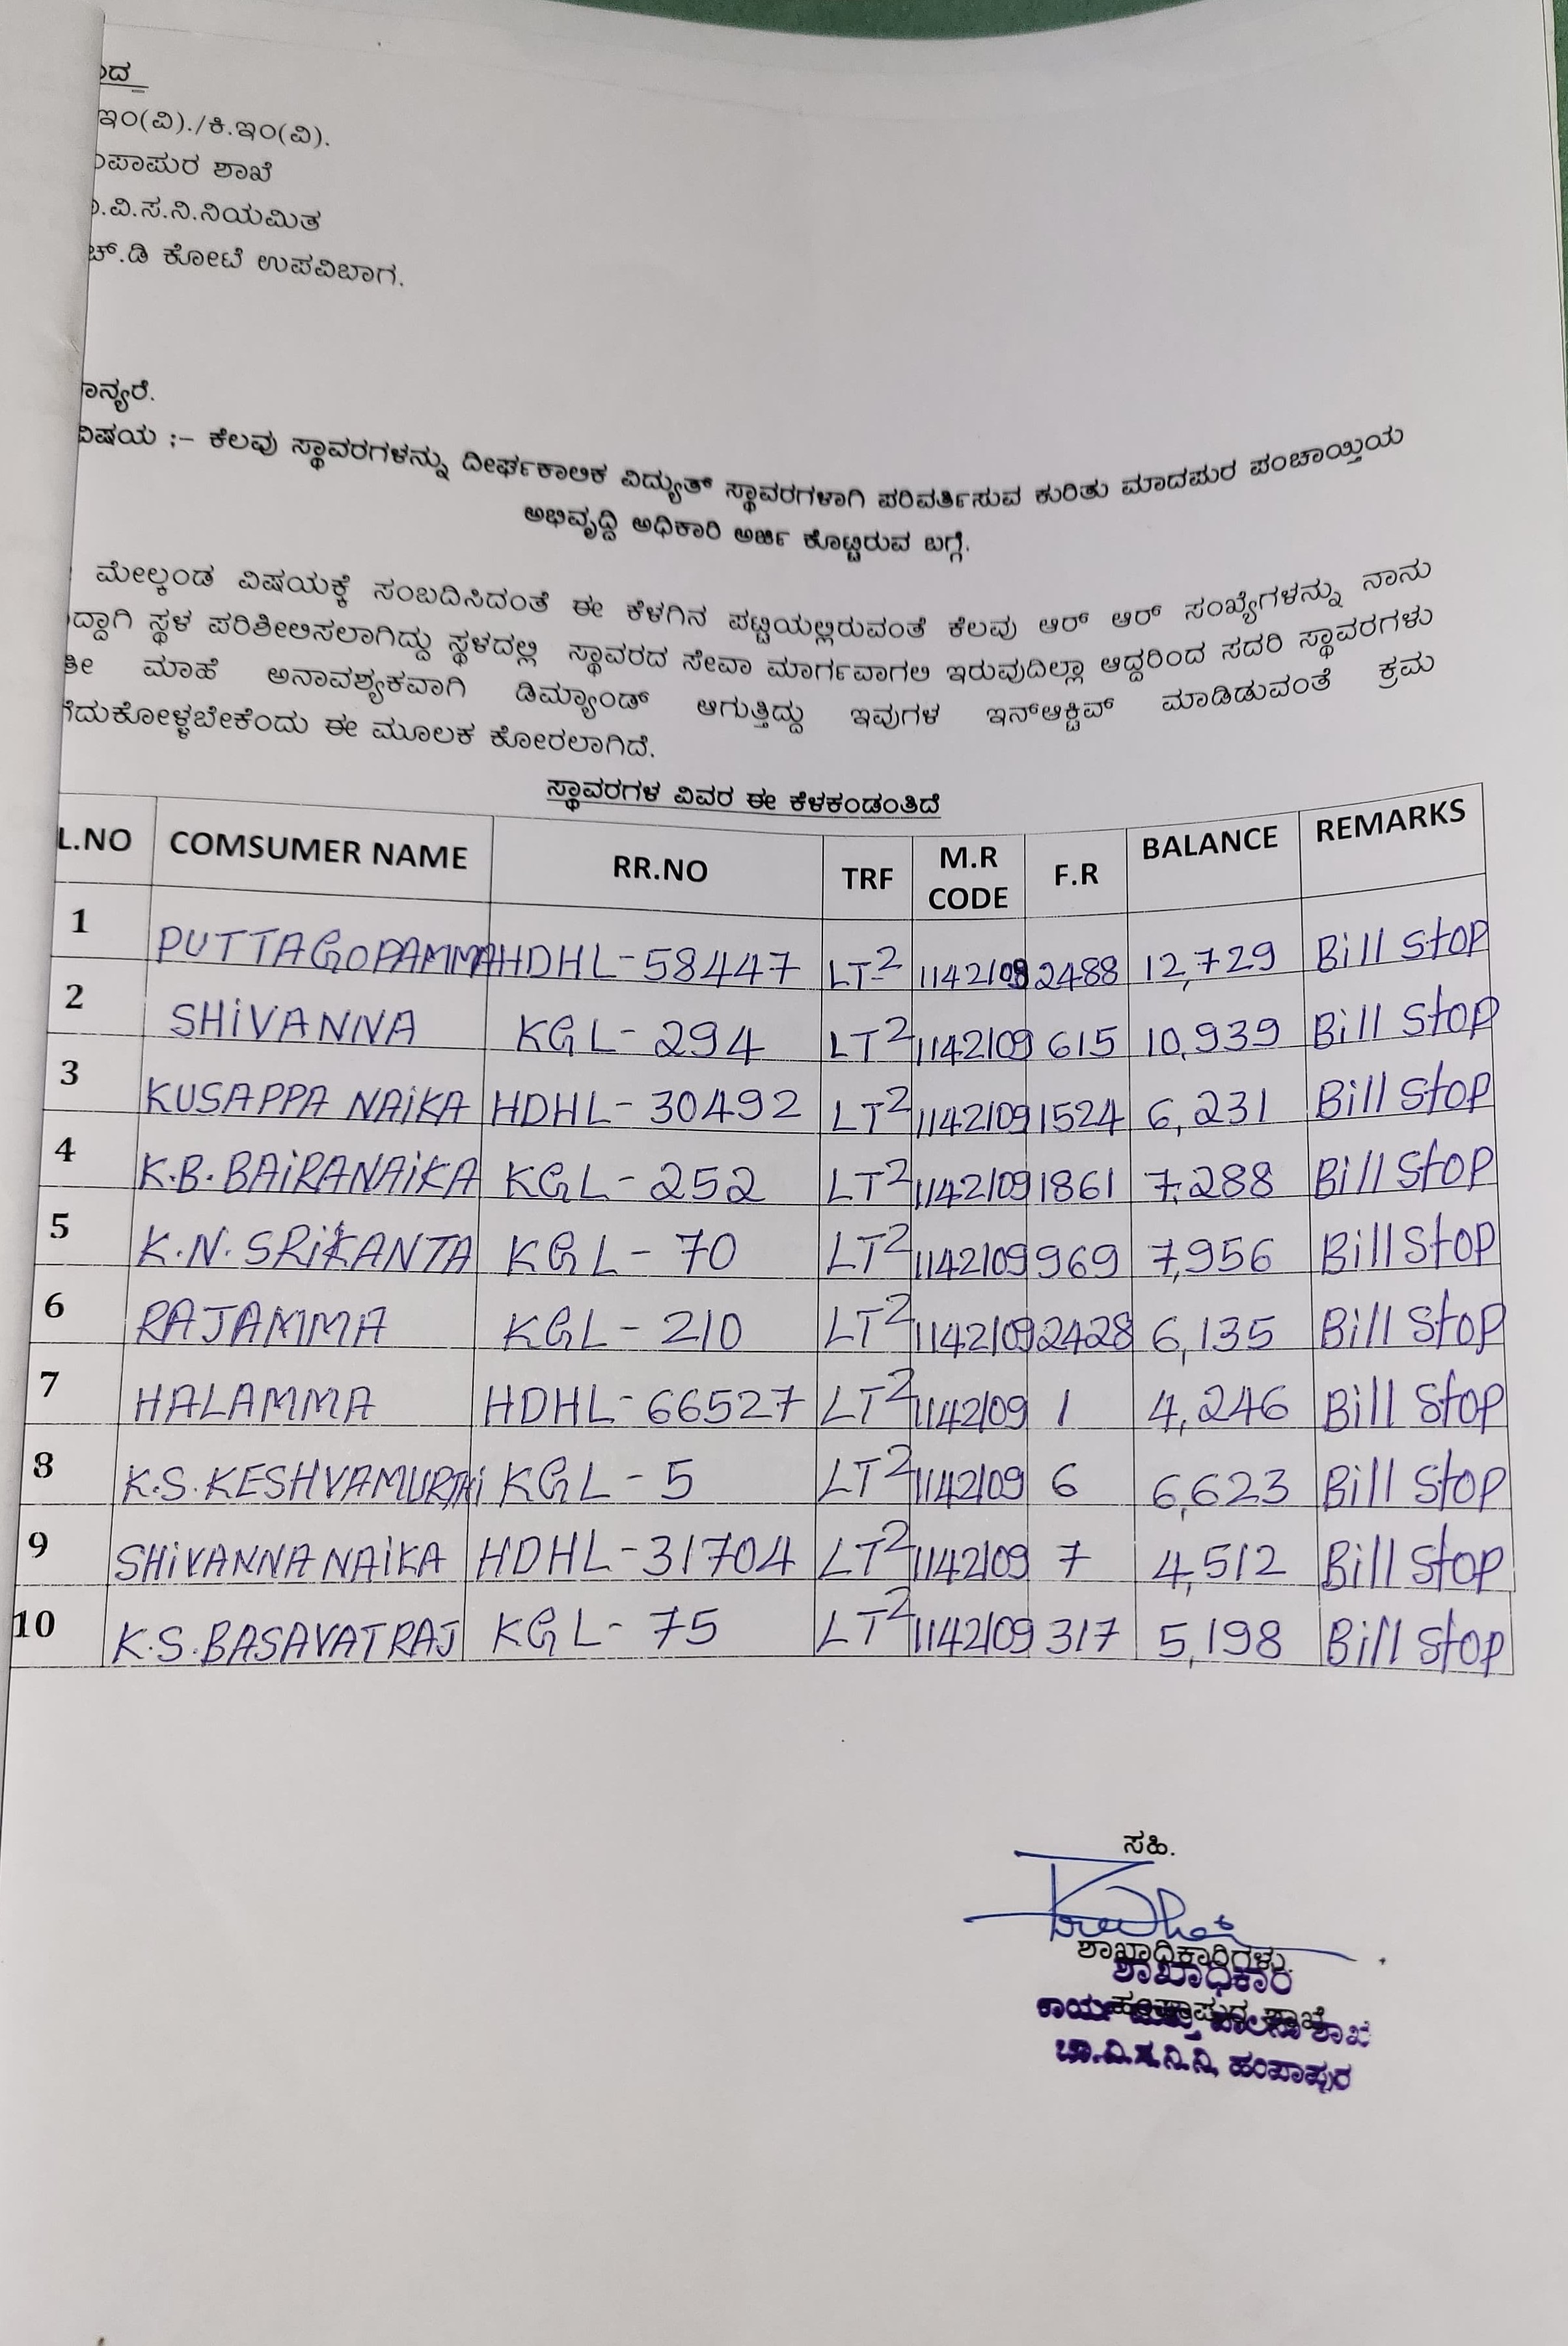 ಇಂ(ವಿ)./ಕಿ.ಇಂ(ವಿ).
ಶಾಖೆ
ವಿ.ಸ.ನಿ.ನಿಯಮಿತ
ಚ್.ಡಿ ಕೋಟೆ ಉಪವಿಬಾಗ.
ಾನ್ಯರೆ.
ವಿಷಯ :– ಕೆಲವು ಸ್ಥಾವರಗಳನ್ನು ದೀರ್ಘಕಾಲಿಕ ವಿದ್ಯುತ್ ಸ್ಥಾವರಗಳಾಗಿ ಪರಿವರ್ತಿಸುವ ಕುರಿತು ಮಾದಪುರ ಪಂಚಾಯ್ತಿಯ
ಅಭಿವೃದ್ದಿ ಅಧಿಕಾರಿ ಅರ್ಜಿ ಕೊಟ್ಟಿರುವ ಬಗ್ಗೆ.
ಮೇಲ್ಕಂಡ ವಿಷಯಕ್ಕೆ ಸಂಬದಿಸಿದಂತೆ ಈ ಕೆಳಗಿನ ಪಟ್ಟಿಯಲ್ಲಿರುವಂತೆ ಕೆಲವು ಆರ್ ಆರ್ ಸಂಖ್ಯೆಗಳನ್ನು ನಾನು
ದ್ದಾಗಿ ಸ್ಥಳ ಪರಿಶೀಲಿಸಲಾಗಿದ್ದು ಸ್ಥಳದಲ್ಲಿ ಸ್ಥಾವರದ ಸೇವಾ ಮಾರ್ಗವಾಗಲಿ ಇರುವುದಿಲ್ಲಾ ಆದ್ದರಿಂದ ಸದರಿ ಸ್ಥಾವರಗಳು
ತೀ ಮಾಹೆ ಅನಾವಶ್ಯಕವಾಗಿ ಡಿಮ್ಯಾಂಡ್ ಆಗುತ್ತಿದ್ದು ಇವುಗಳ ಇನ್ಆಕ್ಟಿವ್ ಮಾಡಿಡುವಂತೆ ಕ್ರಮ
ಗೆದುಕೋಳ್ಳಬೇಕೆಂದು ಈ ಮೂಲಕ ಕೋರಲಾಗಿದೆ.
ಸ್ಥಾವರಗಳ ವಿವರ ಈ ಕೆಳಕಂಡಂತಿದೆ
L.NO COMSUMER NAME RR.NO TRF M.R CODE F.R BALANCE REMARKS
1 PUTTAGOPAMMA HDHL-58447 LT-2 1142109 2488 12,729 Bill Stop
2 SHIVANNA KGL-294 LT2 1142109 615 10,939 Bill Stop
3 KUSAPPA NAIKA HDHL-30492 LT2 1142109 1524 6,231 Bill Stop
4 K.B.BAIRANAIKA KGL-252 LT2 1142109 1861 7,288 Bill Stop
5 K.N.SRIKANTA KGL-70 LT2 1142109 969 7,956 Bill Stop
6 RAJAMMA KGL-210 LT2 1142109 2428 6,135 Bill Stop
7 HALAMMA HDHL-66527 LT2 1142109 1 4,246 Bill Stop
8 K.S.KESHVAMURTHI KGL-5 LT2 1142109 6 6,623 Bill Stop
9 SHIVANNA NAIKA HDHL-31704 LT2 1142109 7 4,512 Bill Stop
10 K.S.BASAVATRAJ KGL-75 LT2 1142109 317 5,198 Bill Stop
ಸಹಿ.
ಶಾಖಾಧಿಕಾರಿಗಳು.
ಶಾಖಾಧಿಕಾರಿ
ಹಂಪಾಪುರ ಶಾಖೆ
ಕಾರ್ಯ ಮತ್ತು ಪಾಲನಾ ಶಾಖೆ
ಚಾ.ವಿ.ಸ.ನಿ.ನಿ, ಹಂಪಾಪುರ